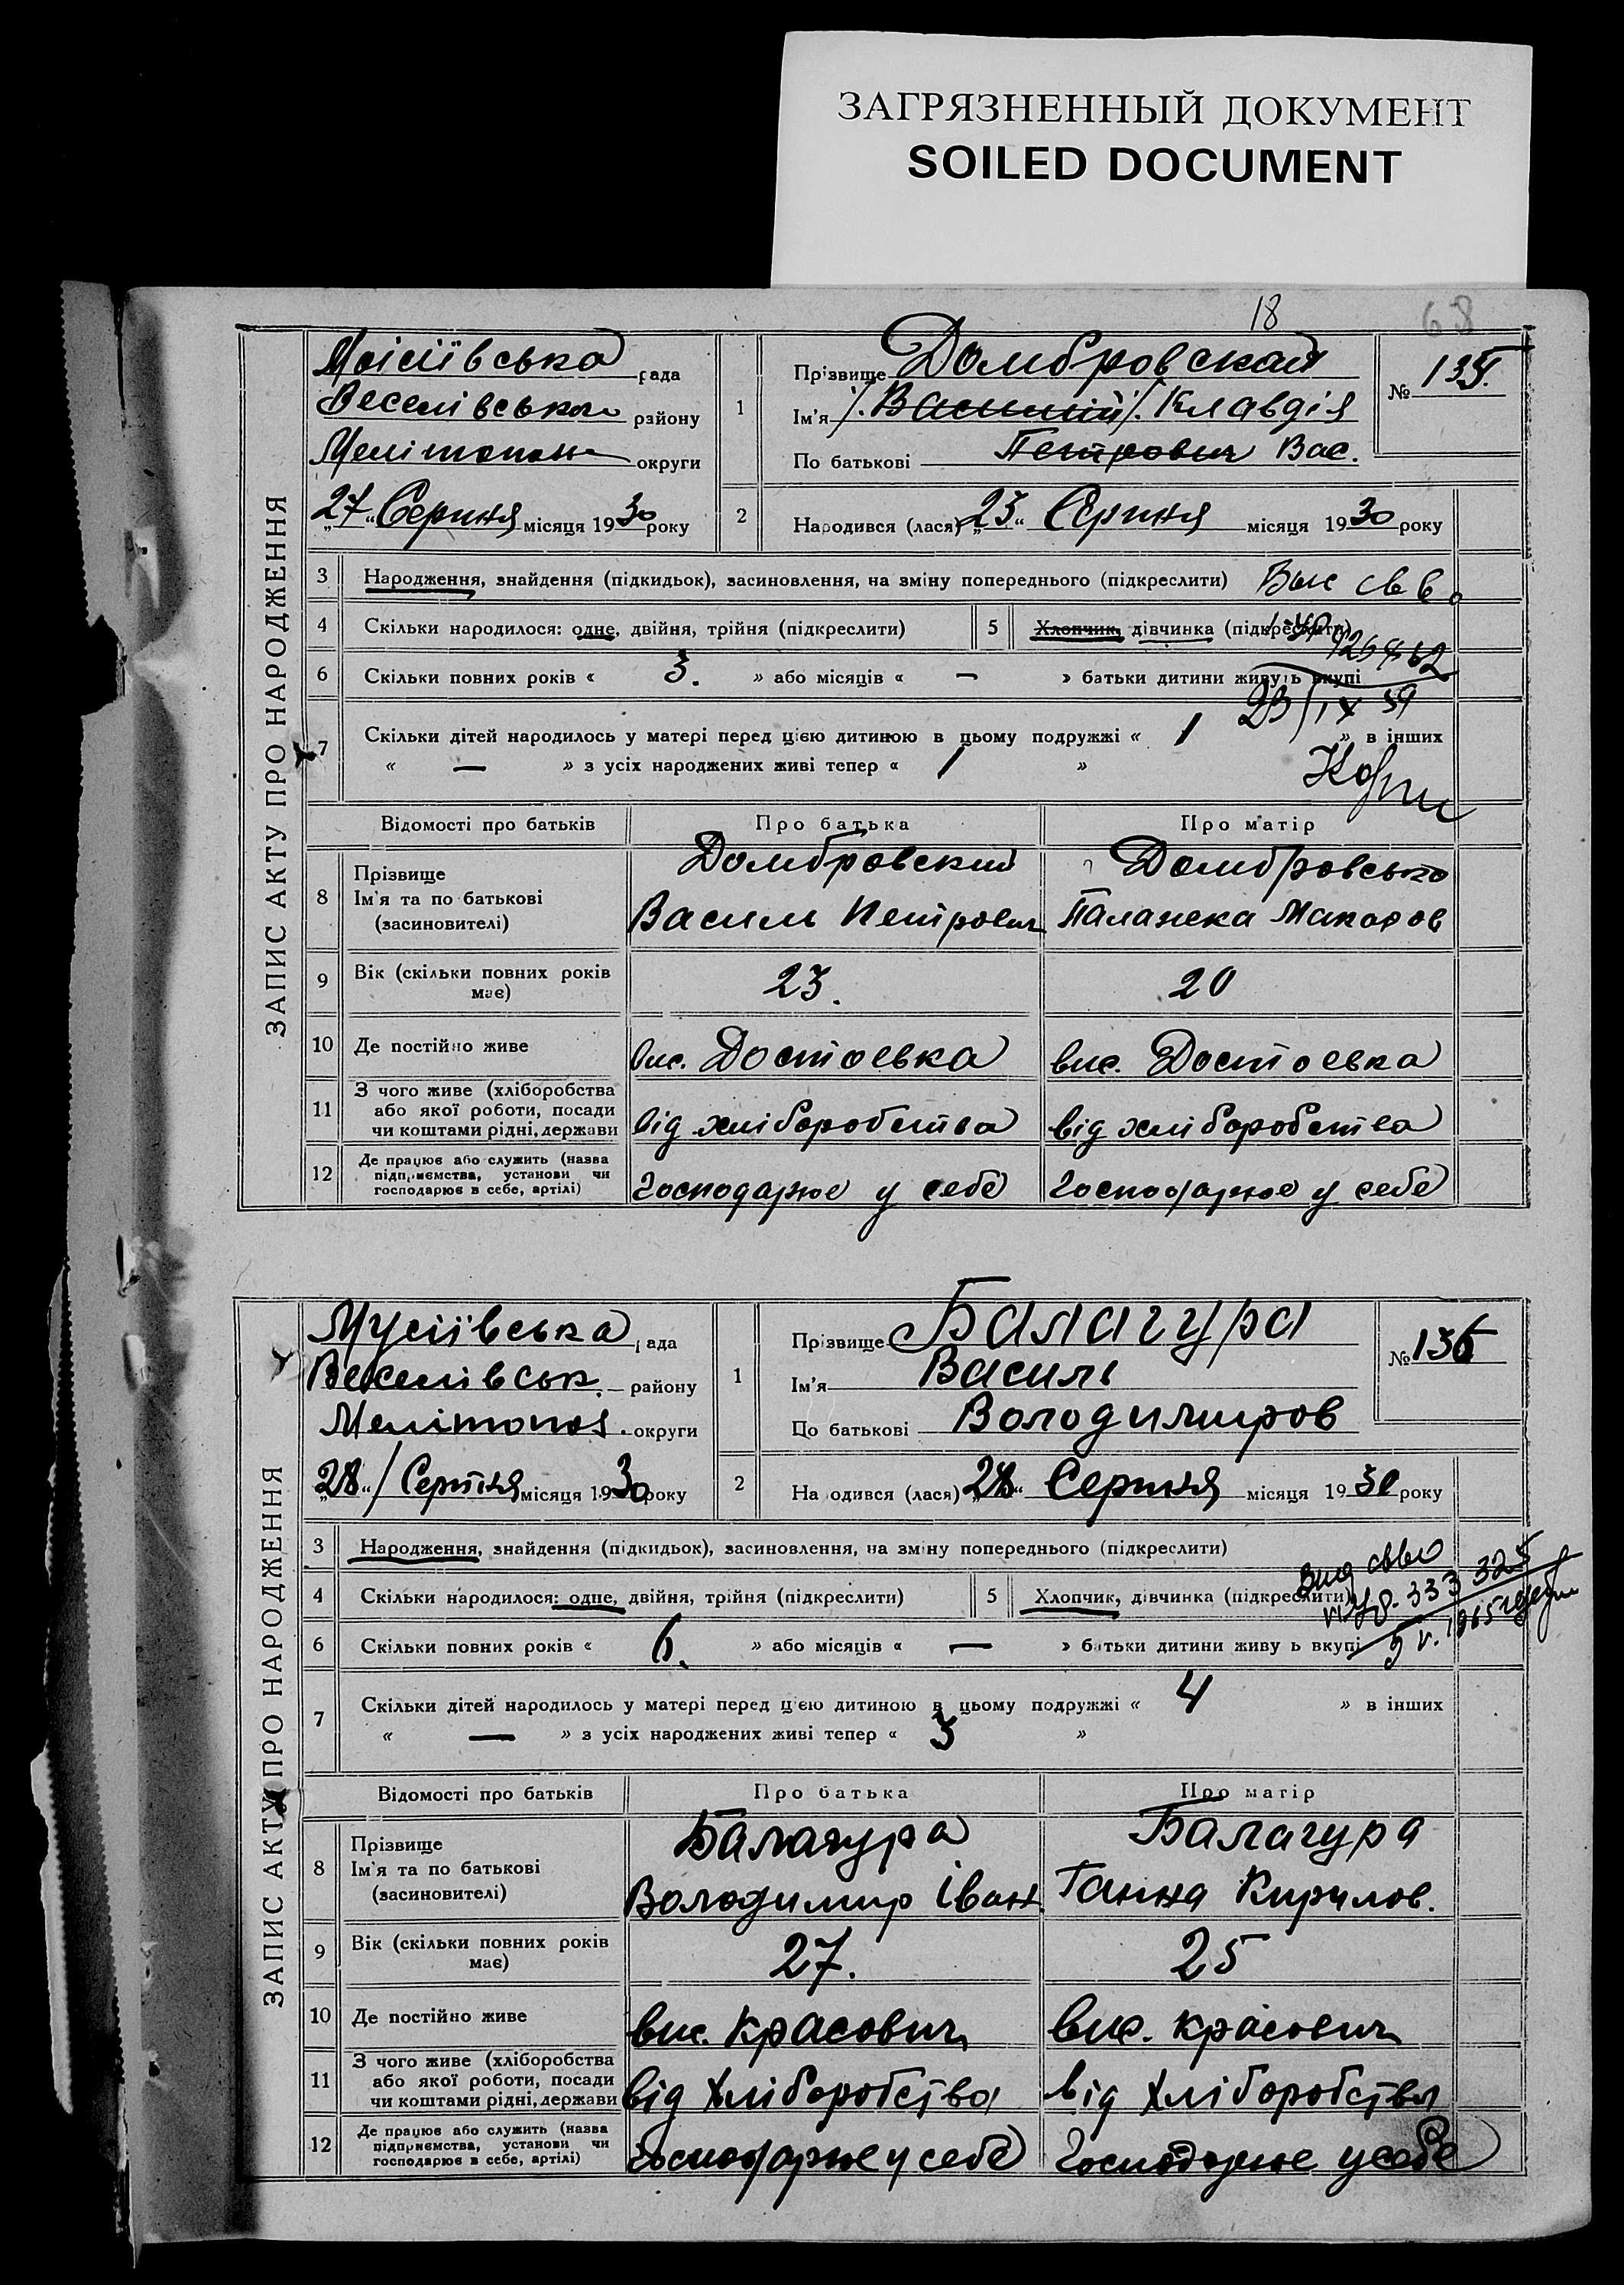 ЗАГРЯЗНЕННЫЙ ДОКУМЕНТ
SOILED DOCUMENT
18
68
ЗАПИС АКТУ ПРО НАРОДЖЕННЯ
Мойсіївська рада
Веселівського району
округи
„27“ Серпня місяця 1930 року
1
Прізвище Домбровский
Ім'я /.Василий/. Клавдія
По батькові Петрович Вас.
№ 135.
2
Народився (лася) „23“ Серпня місяця 1930 року
3 Народження, знайдення (підкидьок), засиновлення, на зміну попереднього (підкреслити)
4 Скільки народилося: одне, двійня, трійня (підкреслити) 5 Хлопчик, дівчинка (підкреслити)
6 Скільки повних років « 3. » або місяців « — » батьки дитини живуть вкупі
23/IX 59
7 Скільки дітей народилось у матері перед цією дитиною в цьому подружжі « 1 » в інших
« — » з усіх народжених живі тепер « 1 »
Відомості про батьків Про батька Про матір
8 Прізвище Ім'я та по батькові (засиновителі)
Домбровский Домбровсько
Василь Петрович Палажка Макаров
9 Вік (скільки повних років має) 23. 20
10 Де постійно живе вис. Достоевка вис. Достоевка
11 З чого живе (хліборобства або якої роботи, посади чи коштами рідні, держави від хліборобства від хліборобства
12 Де працює або служить (назва підприємства, установи чи господарює в себе, артілі) Господарює у себе Господарює у себе
ЗАПИС АКТУ ПРО НАРОДЖЕННЯ
Мусіївська рада
Веселівськ. району
Мелітопол. округи
„28“ Серпня місяця 1930 року
1
Прізвище Балагура
Ім'я Василь
По батькові Володимиров
№ 136
2
Народився (лася) „28“ Серпня місяця 1930 року
3 Народження, знайдення (підкидьок), засиновлення, на зміну попереднього (підкреслити)
4 Скільки народилося: одне, двійня, трійня (підкреслити) 5 Хлопчик, дівчинка (підкреслити)
333 325
6 Скільки повних років « 6. » або місяців « — » батьки дитини живуть вкупі
7 Скільки дітей народилось у матері перед цією дитиною в цьому подружжі « 4 » в інших
« — » з усіх народжених живі тепер « 3 »
Відомості про батьків Про батька Про матір
8 Прізвище Ім'я та по батькові (засиновителі)
Балагура Балагура
Володимир Іван. Ганна Кирилов.
9 Вік (скільки повних років має) 27. 25
10 Де постійно живе вис. Красович вис. Красович
11 З чого живе (хліборобства або якої роботи, посади чи коштами рідні, держави від хліборобства від хліборобства
12 Де працює або служить (назва підприємства, установи чи господарює в себе, артілі) Господарює у себе Господарює у себе